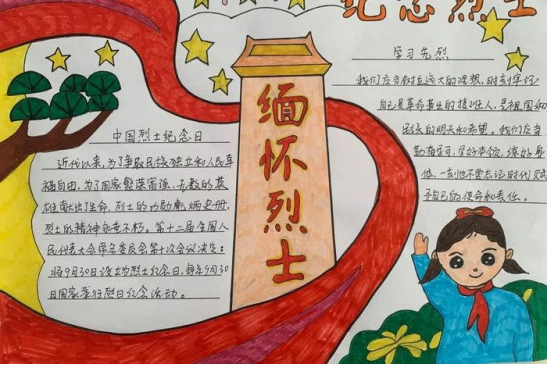 纪念烈士
学习先烈
我们应当树立远大的理想,时刻牢记
自己是革命事业的接班人,是祖国和
民族的明天和希望。我们应当
勤奋学习,学好本领,练好身
体,一刻也不要忘记时代赋
予自己的使命和责任。
缅怀烈士
中国烈士纪念日
近代以来,为了争取民族独立和人民幸
福自由,为了国家繁荣富强,无数的英
雄献出了生命,烈士的功勋彪炳史册,
烈士的精神永垂不朽。第十二届全国人
民代表大会常务委员会第十次会议决定:
将9月30日设立为烈士纪念日,每年9月30
日国家举行烈日纪念活动。